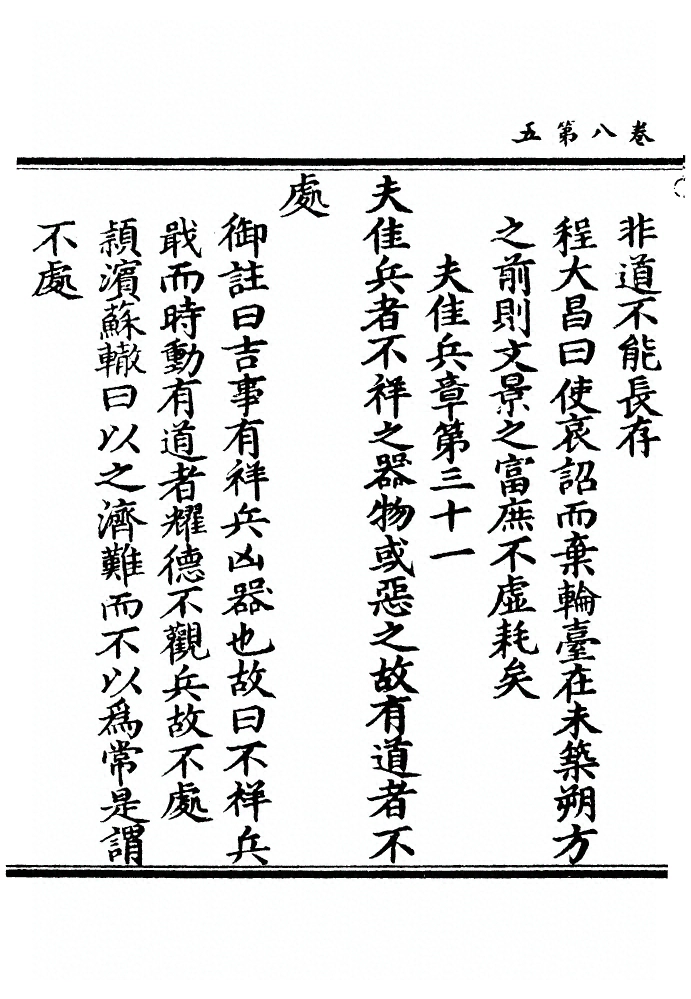 卷八第五
非道不能長存
程大昌曰使哀詔而棄輪臺在未築朔方
之前則文景之富庶不虛耗矣
夫佳兵章第三十一
夫佳兵者不祥之器物或惡之故有道者不
處
御註曰吉事有祥兵凶器也故曰不祥兵
戢而時動有道者耀德不觀兵故不處
頴濵蘇轍曰以之濟難而不以為常是謂
不處